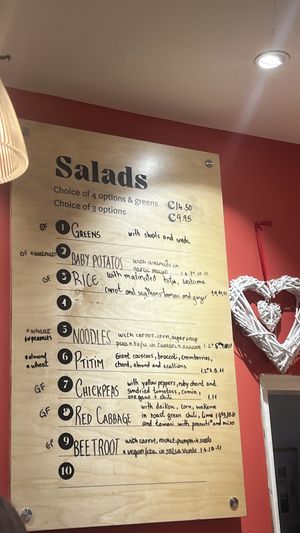 Salads
Choice of 4 options & greens €14.50
Choice of 3 options €9.95
GF 1 GREENS with shoots and seeds
2 BABY POTATOS with walnuts in
garlic mayo
3 RICE with marinated tofu, wakame
carrot and scallions tamari and ginger
4
5 NOODLES with carrot, corn, sugarsnap
peas + tofu in tamari
6 PTITIM Giant couscous, broccoli, cranberries,
chard, almond and scallions
GF 7 CHICKPEAS with yellow peppers, ruby chard and
sundried tomatoes, cumin,
oregano + chili
GF 8 RED CABBAGE with daikon, corn, wakame
in roast green chili, lime
and tamari with peanuts and miso
GF 9 BEETROOT with carrot, rocket, pumpkin seeds
+ vegan feta in salsa verde
10